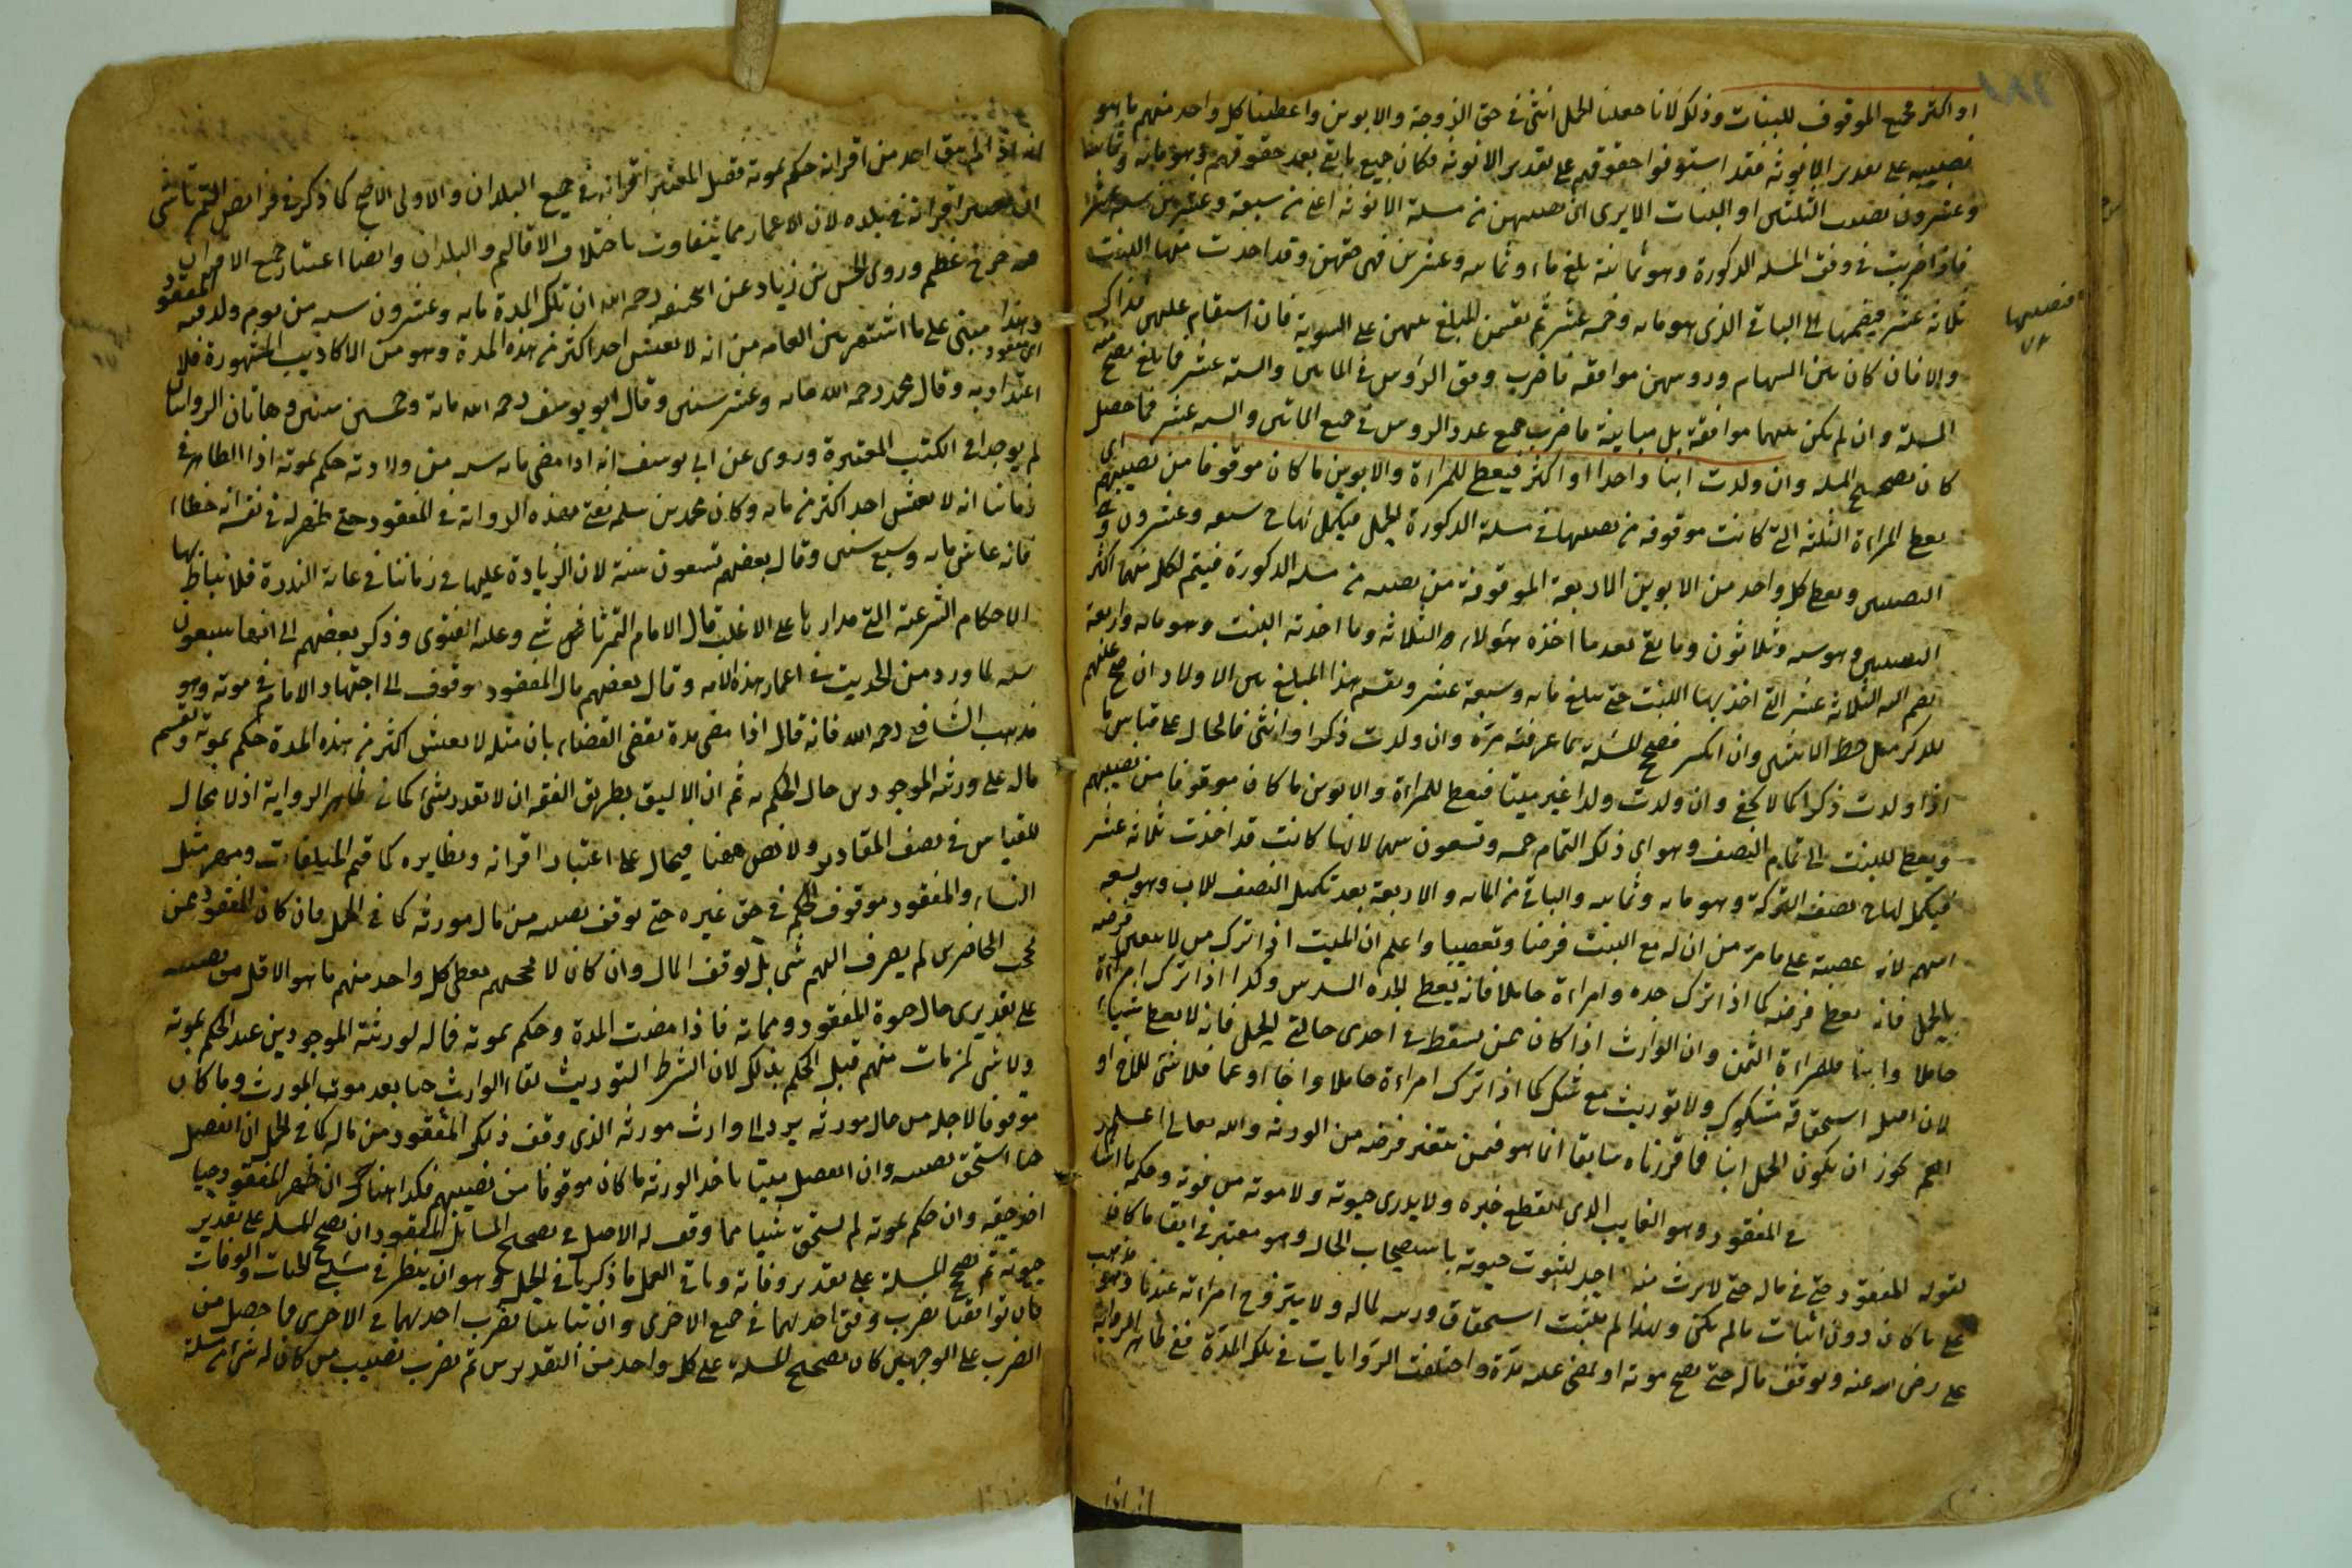 او اكثر فجميع الموقوف للبنات وذلك لانا جعلنا الحمل انثى في حق الزوجة والابوين واعطينا كل واحد منهم ما هو
نصيبه على تقدير الانوثة فقد استوفوا حقوقهم على تقدير الانوثة فكان جميع ما بقى بعد حقوقهم وهو مائة وثمانية
وعشرون نصيب البنتين او البنات الا يرى ان نصيبهن من مسئلة الانوثة اعنى من سبعة وعشرين ستة عشر
فاذا ضربت في وفق المسئلة الذكورة وهو ثمانية بلغ مائة وثمانية وعشرين فهى حقهن وقد اخذت منها البنت
ثلاثة عشر فيضمها الى الباقى الذى هو مائة وخمسة عشر ثم تقسم المبلغ عليهن على السوية فان استقام عليهن فذاك
والا فان كان بين السهام ورؤسهن موافقة فاضرب وفق الرؤس في المائتين والستة عشر فما بلغ تصح منه
المسئلة وان لم يكن بينهما موافقة بل مباينة فاضرب جميع عدد الرؤس في جميع المائتين والستة عشر فما حصل
كان تصحيح المسئلة وان ولدت ابنا واحدا او اكثر فيعطى للمراة والابوين ما كان موقوفا من نصيبهم اى
يعطى المراة الثلثة التى كانت موقوفة من نصيبها في مسئلة الذكورة للحمل فيكمل لها سبعة وعشرون
النصيبين ويعطى كل واحد من الابوين الاربعة الموقوفة من نصيبه من مسئلة الذكورة فيتم لكل منهما اكثر
النصيبين وهو ستة وثلاثون وما بقى بعد ما اخذه هؤلاء الثلاثة وما اخذته البنت وهو مائة واربعة
يضم اليه الثلاثة عشر التى اخذتها البنت حتى يبلغ مائة وسبعة عشر ويقسم هذا المبلغ بين الاولاد ان صح عليهم
للذكر مثل حظ الانثيين وان انكسر فصحح المسئلة بما عرفته مرة وان ولدت ذكرا وانثى فالحال على قياس ما
اذا ولدت ذكرا كما لا يخفى وان ولدت ولدا غير ميتا فيعطى للمراة والابوين ما كان موقوفا من نصيبهم
ويعطى للبنت الى تمام النصف وهو اى ذلك التمام خمسة وتسعون سهما لانها كانت قد اخذت ثلاثة عشر
فيكمل لها نصف التركة وهو مائة وثمانية والباقى من المائة والاربعة بعد تكميل النصف للاب وهو تسعة
اسهم لانه عصبة على ما مر من ان له مع البنت فرضا وتعصيبا واعلم ان الميت اذا ترك من لا يتعين فرضه
بالحمل فانه يعطى فرضه كما اذا ترك جدة وامراءة حاملا فانه يعطى للجدة السدس وكذا اذا ترك امراءة
حاملا وابنا فللمراءة الثمن وان الوارث اذا كان ممن يسقط في احدى حالتى الحمل فانه لا يعطى شيئا
لان اصل استحقاقه مشكوك ولا توريث مع شك كما اذا ترك امراءة حاملا واخا او عما فلا شئ للاخ او
العم لجواز ان يكون الحمل ابنا فما قررناه سابقا انما هو فيمن يتغير فرضه من الورثة والله تعالى اعلم
في المفقود وهو الغايب الذى انقطع خبره ولا يدرى حيوته ولا موته وحكمه ما اشار
بقوله المفقود حى في ماله حتى لا يرث منه احد لثبوت حيوته باستصحاب الحال وهو معتبر في ابقاء ما كان
على ما كان دون اثبات ما لم يكن ولهذا لم يثبت استحقاق ورثته لماله ولا يتزوج امراته عندنا وهو مذهب
على رضى الله عنه ويوقف ماله حتى يصح موته او يمضى عليه مدة واختلفت الروايات في تلك المدة ففى ظاهر الرواية
انه اذا
فنصيبها
انه اذا لم يبق احد من اقرانه حكم بموته فقيل المعتبر اقرانه في جميع البلدان والاولى الاصح كما ذكر في فرائض التمرتاشى
ان يعتبر اقرانه في بلده لان الاعمار مما يتفاوت باختلاف الاقاليم والبلدان وايضا اعتبار جميع الاقران
فيه حرج عظيم وروى الحسن بن زياد عن ابى حنيفة رحمه الله ان تلك المدة مائة وعشرون سنة من يوم ولد فيه المفقود
وهذا مبنى على ما اشتهر بين العامة من انه لا يعيش احد اكثر من هذه المدة وهو من الاكاذيب المشهورة فلا
اعتداد به وقال محمد رحمه الله مائة وعشر سنين وقال ابو يوسف رحمه الله مائة وخمسين سنين وهاتان الروايتان
لم يوجدا في الكتب المعتبرة وروى عن ابى يوسف انه اذا مضى مائة سنة من ولادته حكم بموته اذ الظاهر في
زماننا انه لا يعيش احد اكثر من مائة وكان محمد بن سلمة يفتى بهذه الرواية في المفقود حتى ظهر له في نفسه انه خطاء
فانه عاش مائة وسبع سنين وقال بعضهم تسعون سنة لان الزيادة عليها في زماننا في غاية الندرة فلا يناط بها
الاحكام الشرعية التى مدارها على الاغلب قال الامام التمرتاشى وعليه الفتوى وذكر بعضهم الى انها سبعون
سنة لما ورد من الحديث في اعمار هذه الامة وقال بعضهم مال المفقود موقوف الى اجتهاد الامام في موته وهو
مذهب الشافعى رحمه الله فانه قال اذا مضى مدة يقضى القضاء بان مثله لا يعيش اكثر من هذه المدة حكم بموته وتقسم
ماله على ورثته الموجودين حال الحكم به ثم ان الاليق بطريق الفقه ان لا يقدر بشئ كما في ظاهر الرواية اذ لا مجال
للقياس في نصف المقادير ولا نص ههنا فيحال على اعتبار اقرانه ونظايره كما في قيم المتلفات ومهر مثل
النساء والمفقود موقوف الحكم في حق غيره حتى يوقف نصيبه من مال مورثه كما في الحمل فان كان المفقود ممن
يحجب الحاضرين لم يصرف اليهم شئ بل يوقف المال وان كان لا يحجبهم يعطى كل واحد منهم ما هو الاقل من نصيبه
على تقديرى حال حيوة المفقود ومماته فاذا مضت المدة وحكم بموته فماله لورثته الموجودين عند الحكم بموته
ولا شئ لمن مات منهم قبل الحكم بذلك لان الشرط التوريث بقاء الوارث حيا بعد موت المورث وما كان
موقوفا لاجله من مال مورثه يرد الى وارث مورثه الذى وقف ذلك المفقود من ماله كما في الحمل ان انفصل
حيا استحق نصيبه وان انفصل ميتا ياخذ الورثة ما كان موقوفا من نصيبهم فكذا هناك ان ظهر المفقود حيا
اخذ حقه وان حكم بموته لم يستحق شيئا مما وقف له الاصل في تصحيح المسائل المفقود ان تصحح المسئلة على تقدير
حيوته ثم تصحح المسئلة على تقدير وفاته وباقى العمل ما ذكرنا في الحمل وهو ان ينظر في مسئلتى الحيات والوفات
فان توافقتا يضرب وفق احديهما في جميع الاخرى وان تباينتا يضرب احديهما في الاخرى فما حصل من
الضرب على الوجهين كان تصحيح المسئلة على كل واحد من التقديرين ثم تضرب نصيب من كان له شئ من مسئلة